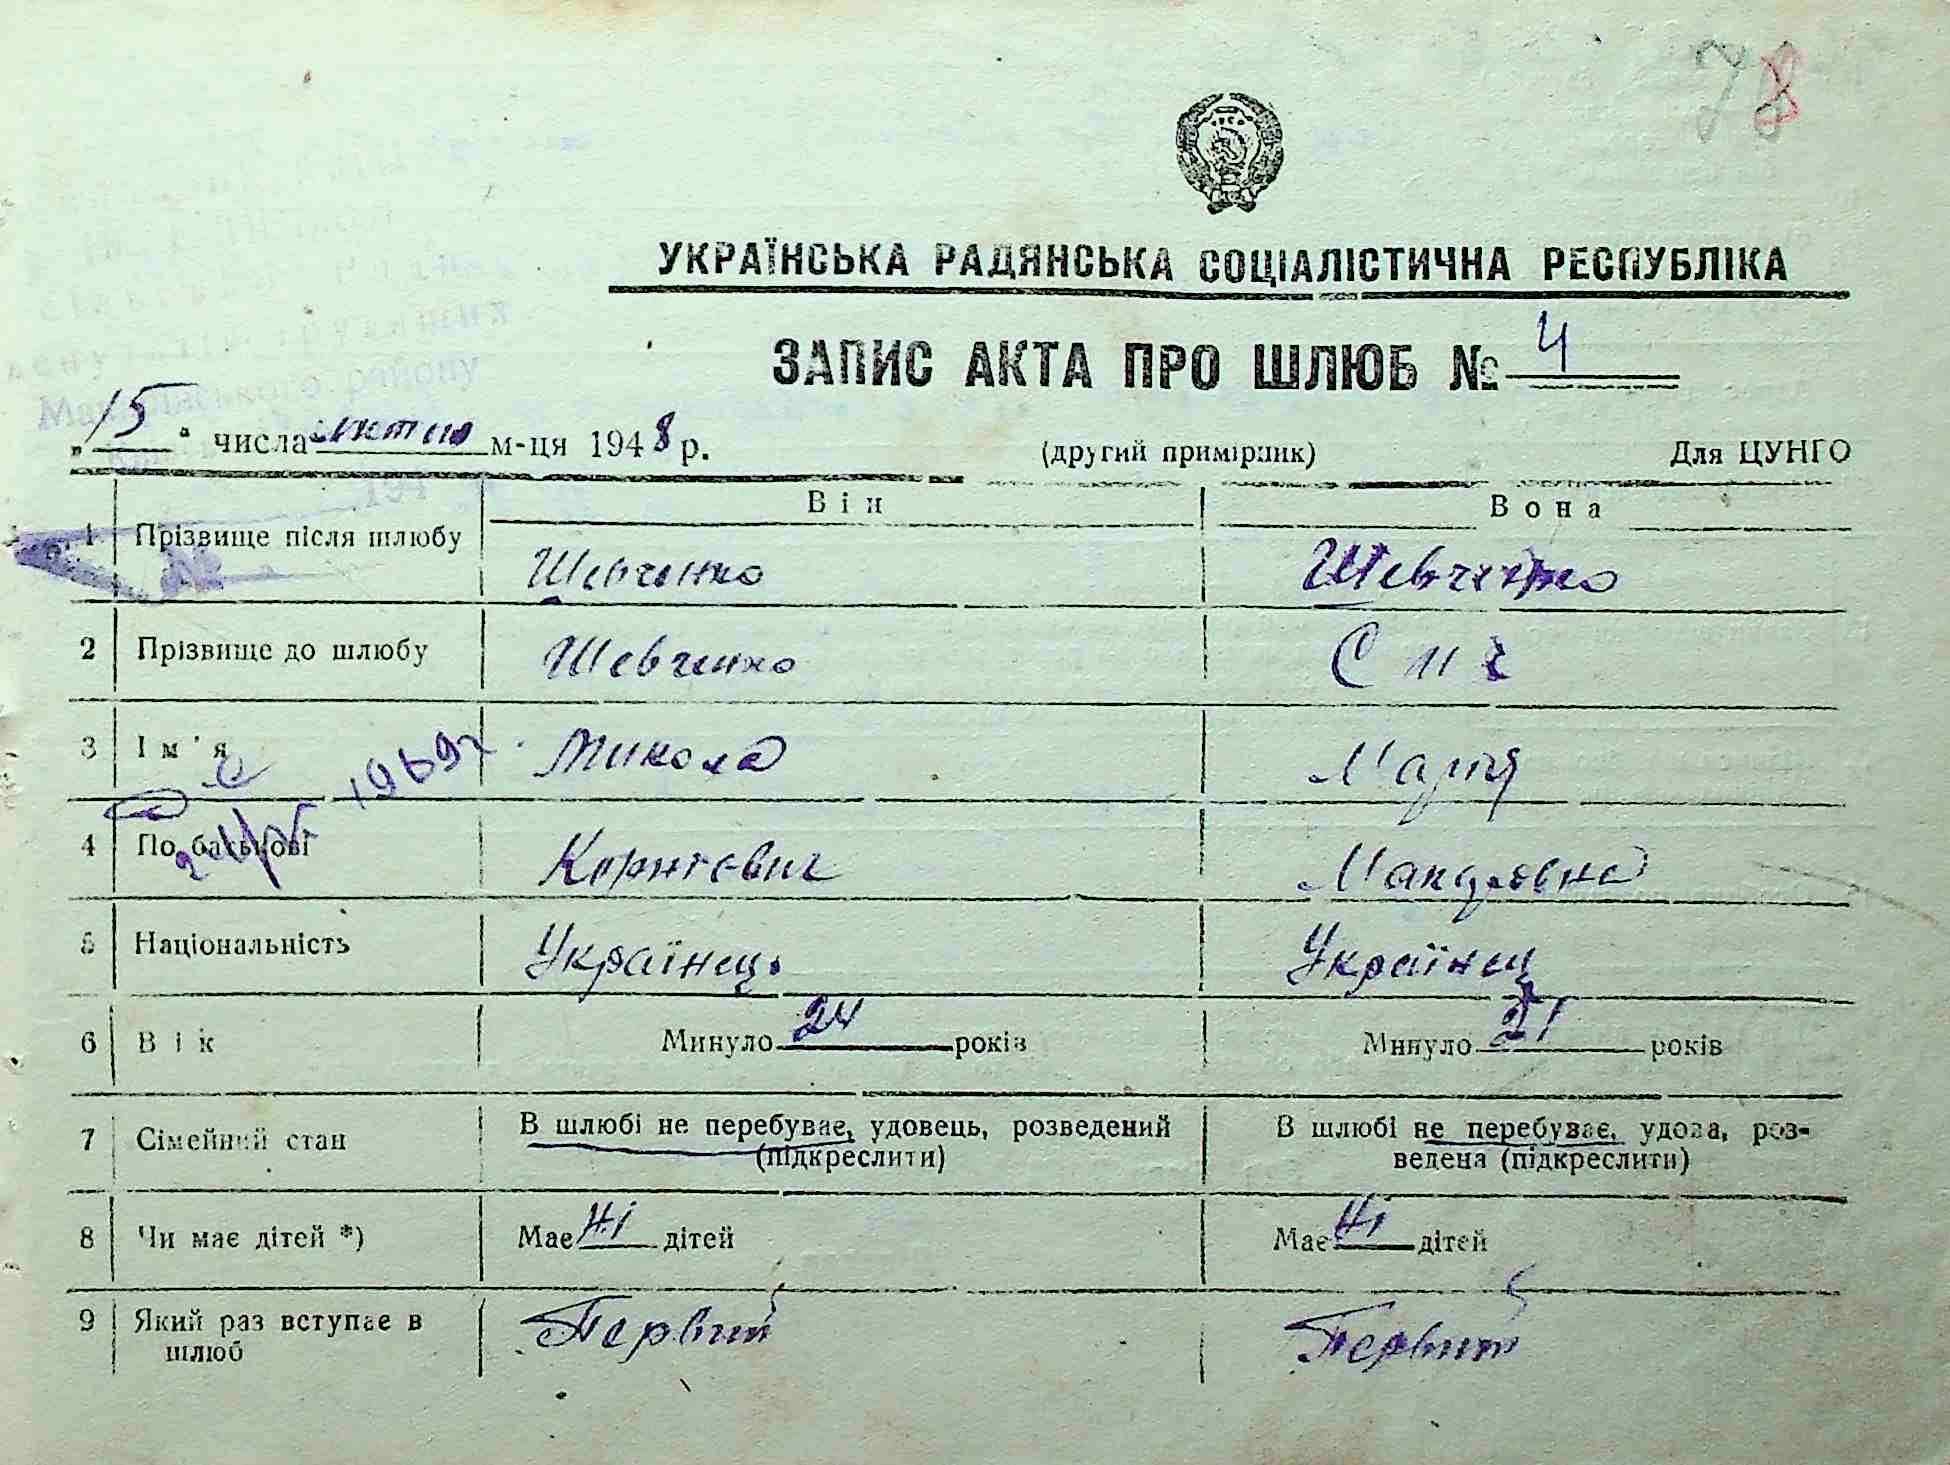 78
УКРАЇНСЬКА РАДЯНСЬКА СОЦІАЛІСТИЧНА РЕСПУБЛІКА
ЗАПИС АКТА ПРО ШЛЮБ № 4
„15“ числа лютого м-ця 1948 р. (другий примірник) Для ЦУНГО
Він Вона
1 Прізвище після шлюбу Шевченко Шевченко
2 Прізвище до шлюбу Шевченко
3 Ім'я Микола Марія
1969
4 По батькові Корнієвич
5 Національність Українець Українец
6 Вік Минуло 24 років Минуло 21 років
7 Сімейний стан В шлюбі не перебуває, удовець, розведений (підкреслити) В шлюбі не перебуває, удова, роз-
ведена (підкреслити)
8 Чи має дітей *) Має ні дітей Має ні дітей
9 Який раз вступає в шлюб Первий Первий
Макарівського району